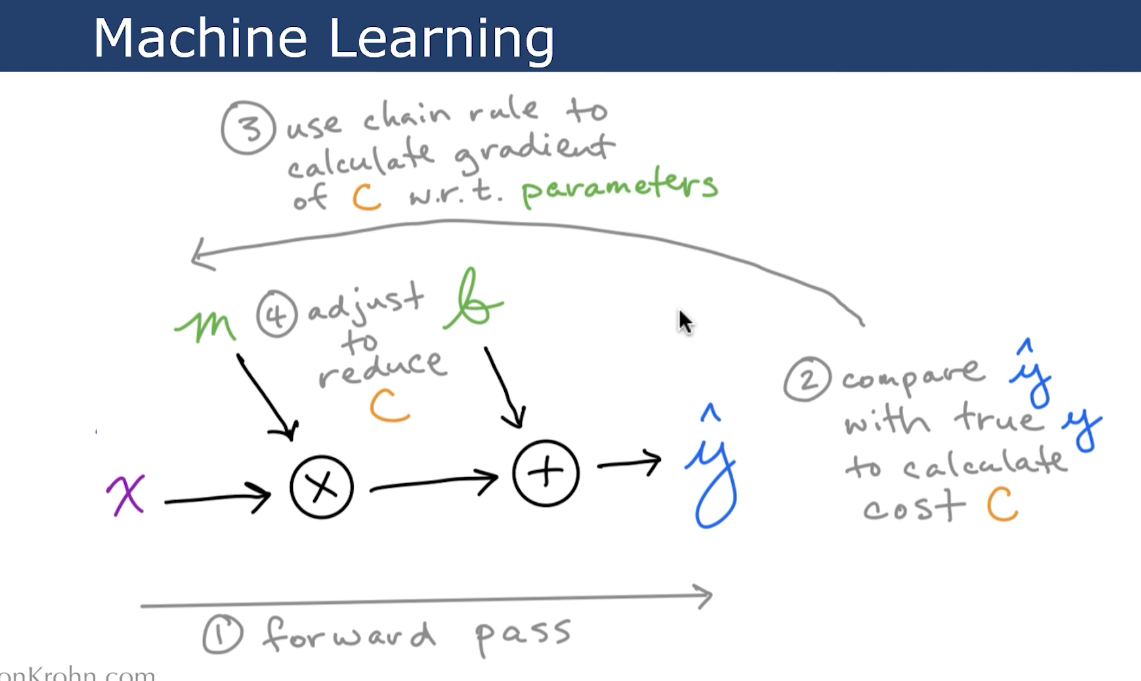 Machine Learning
③ use chain rule to
calculate gradient
of C w.r.t. parameters
m
④ adjust
to
reduce
C
b
x
×
+
ŷ
② compare ŷ
with true y
to calculate
cost C
① forward pass
onKrohn.com